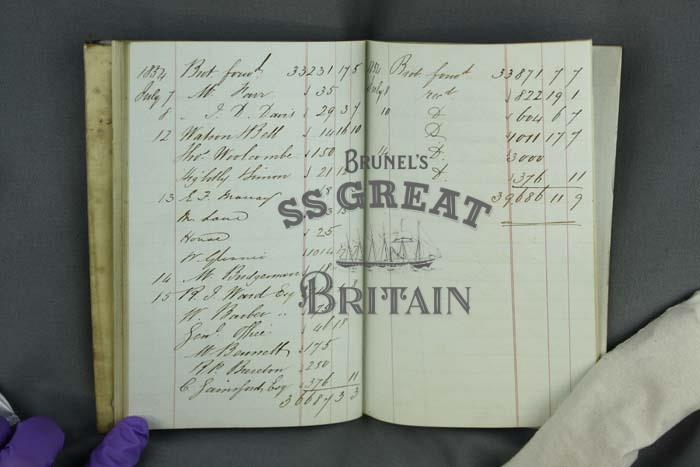 1834 Brot forwd 33231 17 5
July 7 Mr 35
8 J. D. Davis 29 3 7
12 Watson & Bell 14 16 10
Thos Woolcombe 150
Simon 21
13 E. F.
Mr Lane
House 25
W.
14 Mr Bridgeman 18
15 R. J. Ward Esq
W. Barber ..
Genl Office 46 18
Mr Bennett 175
R P. Brereton 250
C Gainsford, Esq 376 11
3 6 6 8 7 3 3
Brot forwd 33871 7 7
July 8 822 19 1
10 D. 604 6 7
D. 4011 17 7
D. 3000
D. 376 11
39686 11 9
BRUNEL'S
SS GREAT
BRITAIN